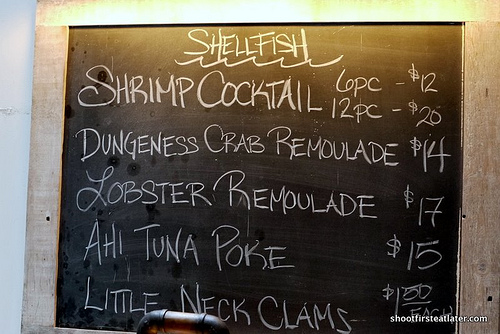 SHELLFISH
SHRIMP COCKTAIL 6PC - $12
12PC - $20
DUNGENESS CRAB REMOULADE $14
LOBSTER REMOULADE $17
AHI TUNA POKE $15
LITTLE NECK CLAMS $1.50
EACH
shootfirsteatlater.com